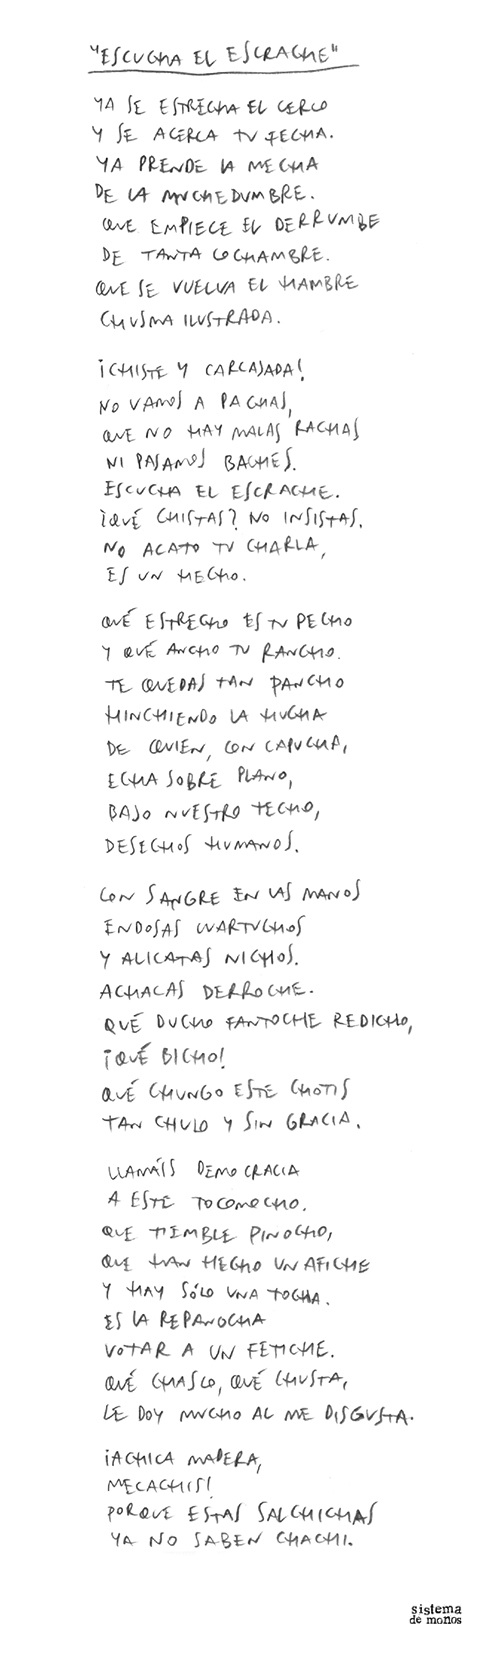 "ESCUCHA EL ESCRACHE"
YA SE ESTRECHA EL CERCO
Y SE ACERCA TU FECHA.
YA PRENDE LA MECHA
DE LA MUCHEDUMBRE.
QUE EMPIECE EL DERRUMBE
DE TANTA COCHAMBRE.
QUE SE VUELVA EL HAMBRE
CHUSMA ILUSTRADA.
¡CHISTE Y CARCAJADA!
NO VAMOS A PACHAS,
QUE NO HAY MALAS RACHAS
NI PASAMOS BACHES.
ESCUCHA EL ESCRACHE.
¿QUÉ CHISTAS? NO INSISTAS.
NO ACATO TU CHARLA,
ES UN HECHO.
QUÉ ESTRECHO ES TU PECHO
Y QUÉ ANCHO TU RANCHO.
TE QUEDAS TAN PANCHO
HINCHIENDO LA HUCHA
DE QUIEN, CON CAPUCHA,
ECHA SOBRE PLANO,
BAJO NUESTRO TECHO,
DESECHOS HUMANOS.
CON SANGRE EN LAS MANOS
ENDOSAS CUARTUCHOS
Y ALICATAS NICHOS.
ACHACAS DERROCHE.
QUÉ DUCHO FANTOCHE REDICHO,
¡QUÉ BICHO!
QUÉ CHUNGO ESTE CHOTIS
TAN CHULO Y SIN GRACIA.
LLAMÁIS DEMOCRACIA
A ESTE TOCOMOCHO.
QUE TIEMBLE PINOCHO,
QUE HAN HECHO UN AFICHE
Y HAY SÓLO UNA TOCHA.
ES LA REPANOCHA
VOTAR A UN FETICHE.
QUÉ CHASCO, QUÉ CHUSTA,
LE DOY MUCHO AL ME DISGUSTA.
¡ACHICA MADERA,
MECACHIS!
PORQUE ESTAS SALCHICHAS
YA NO SABEN CHACHI.
sistema
de monos